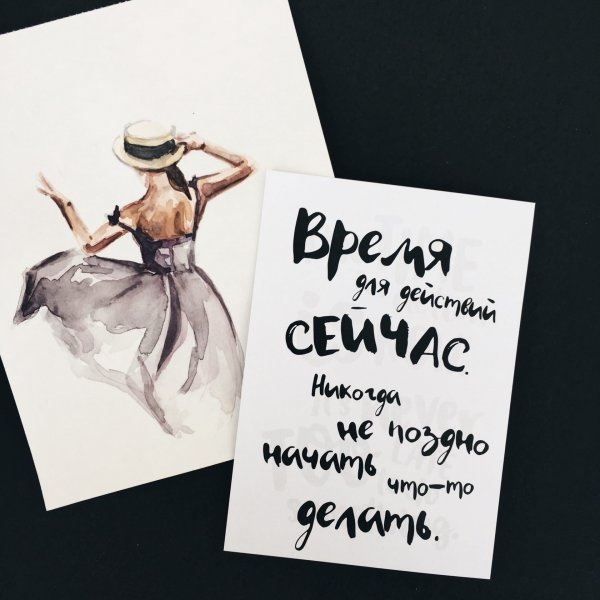 Время
для действий
СЕЙЧАС.
Никогда
не поздно
начать
что-то
делать.